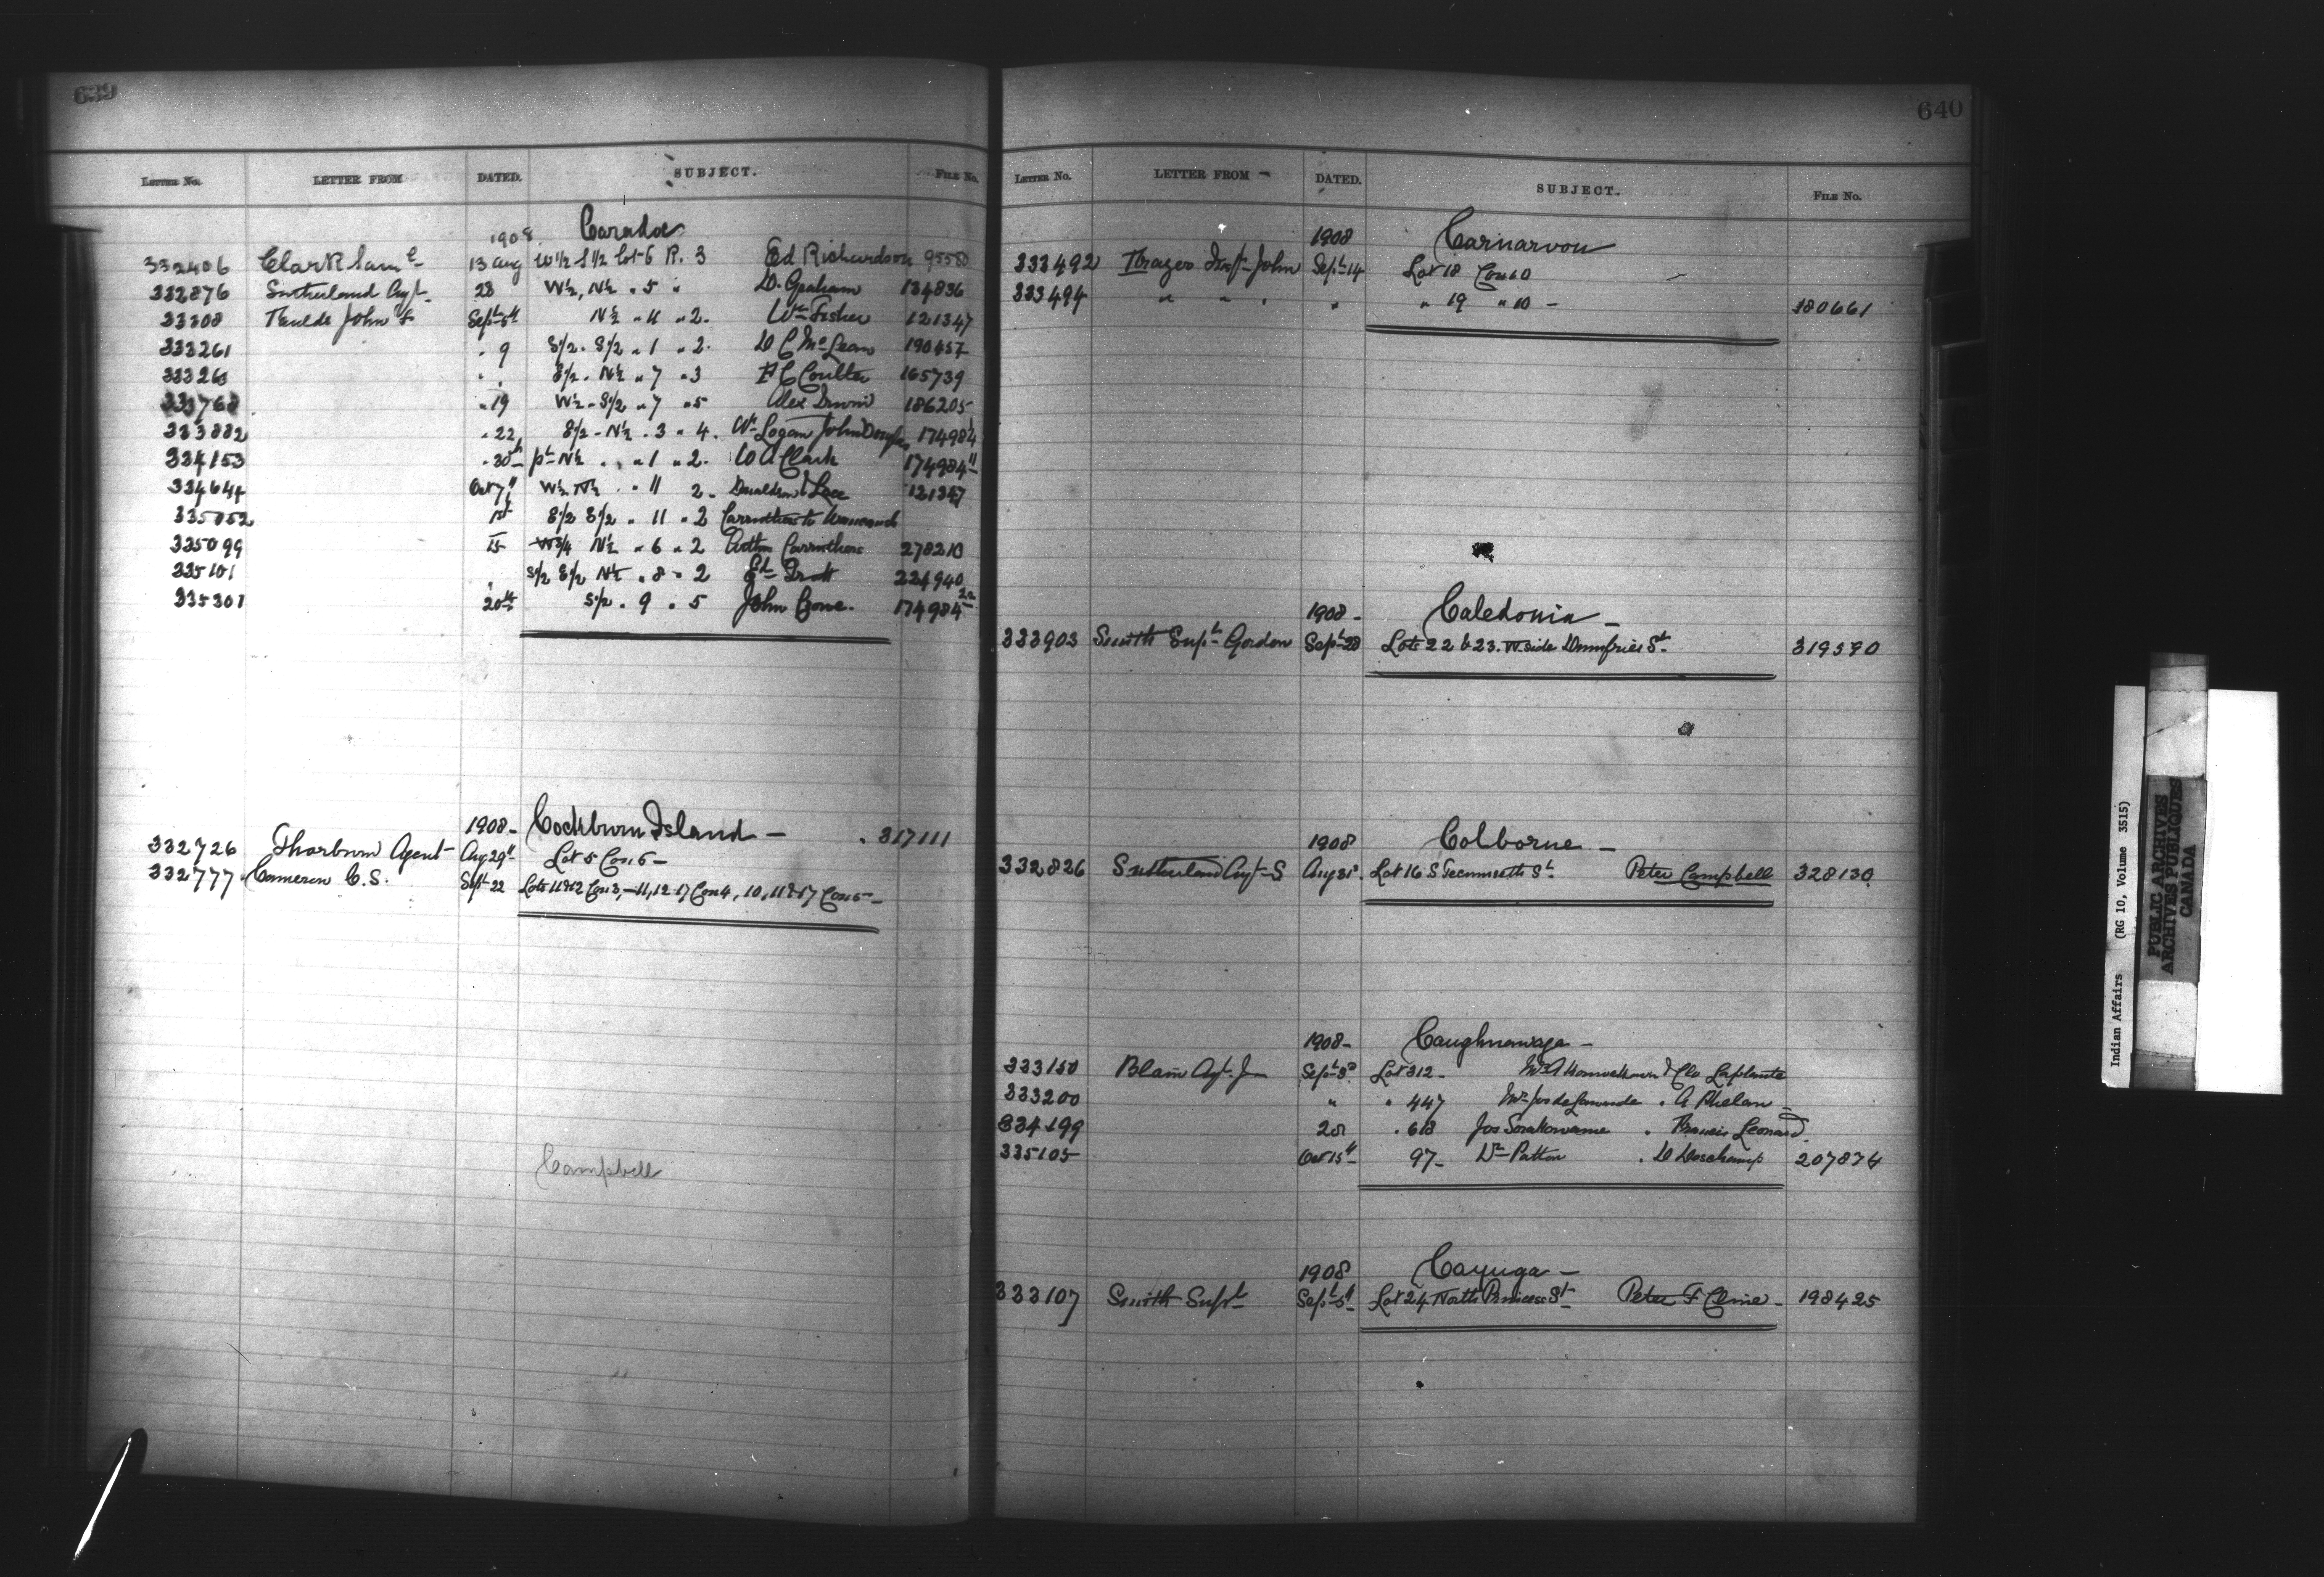 639
LETTER No. LETTER FROM DATED. SUBJECT. FILE No.
1908 Caradoc
332406 Clark Saml 13 Aug W 1/2 S 1/2 Lot 6 R. 3 Ed Richardson 95580
332876 Sutherland Agt. 28 W½, N½ " 5 " D. Graham 134836
33308 John F Septr 5th N½ " 11 " 2. Wm Fisher 121347
333261 " 9 S½ - S½ " 1 " 2. D C McLean 190457
33326 " " S½ - N½ " 7 " 3 F C Coulter 165739
333768 " 19 W½ - S½ " 7 " 5 Alex 186205
333882 " 22 S½ - N½ " 3 " 4. Wm Logan John Douglas 174984
334153 " 30th pt N½ " " 1 " 2. W A Clark 174984 11
334644 Oct 7th W½ N½ " 11 2. Donaldson & Lee 121347
335052 1st S½ S½ " 11 " 2 Carruthers to
335099 15 W3/4 N½ " 6 " 2 Carruthers 278210
335101 " S½ S½ N½ " 8 " 2 224940
335301 20th S½ " 9 " 5 John 174984 22
1908 - Cockburn Island - 317111
332726 Thorburn Agent Aug 29th Lot 5 Con 6 -
332777 Cameron C. S. Sept 22 Lots 11 & 12 Con 3, - 11, 12 - 17 Con 4, 10, 11 & 17 Con 5 -
Campbell
640
LETTER No. LETTER FROM DATED. SUBJECT. FILE No.
1908 Carnarvon
333492 John Sept 14 Lot 18 Con 10
333494 " " " " " 19 " 10 - 180661
1908 - Caledonia -
333903 Smith Supt Gordon Sept 28 Lots 22 & 23. W side Dumfries St. 319590
1908 Colborne -
332826 Sutherland Agt S Aug 31st Lot 16 S Tecumseth St. Peter Campbell 328130
1908 - Caughnawaga -
333150 Blain Agt. J Sept 3d Lot 312 - & Laplante
333200 " " 447 Mrs Jos de Lorimier " A Phelan -
334199 28 " 618 Jos " Francis Leonard
335105 Oct 15th 97 - Wm Patton " D Deschamp 207874
1908 Cayuga -
333107 Smith Supt Sept 5th Lot 24 North Princess St Peter F Cline - 198425
Indian Affairs (RG 10, Volume 3515)
PUBLIC ARCHIVES
ARCHIVES PUBLIQUES
CANADA